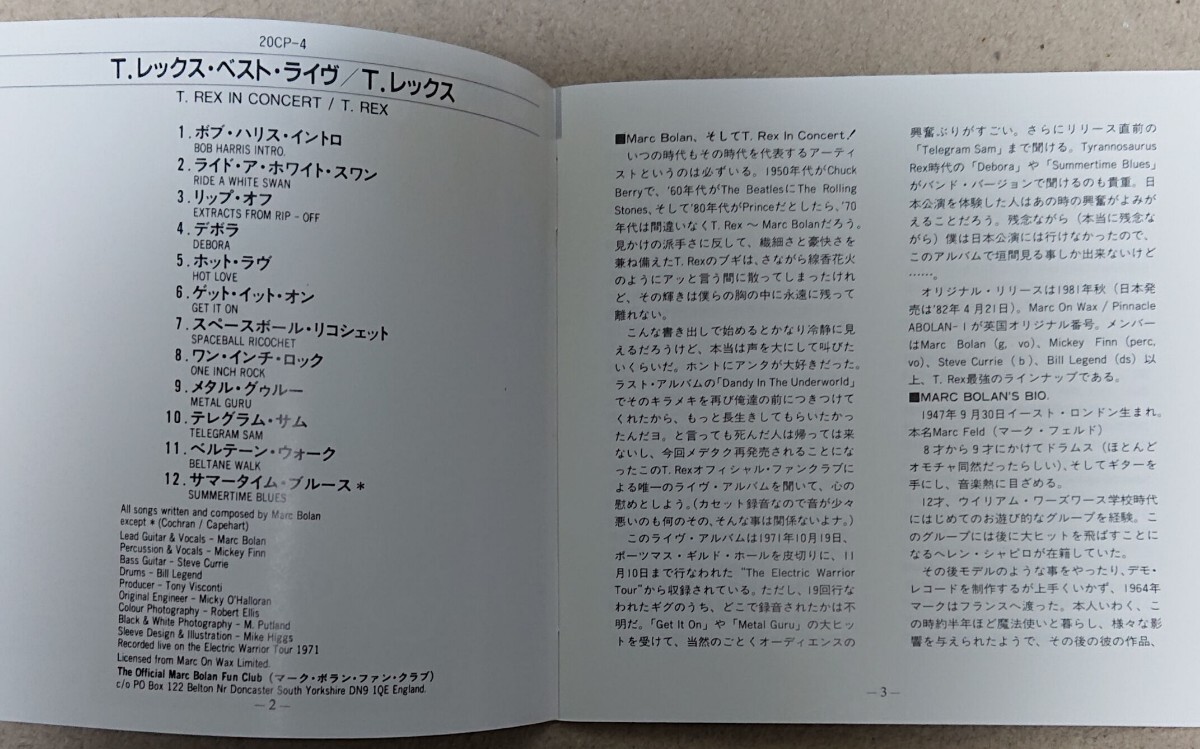 20CP-4
T.レックス・ベスト・ライヴ/T.レックス
T. REX IN CONCERT / T. REX
1.ボブ・ハリス・イントロ
BOB HARRIS INTRO.
2.ライド・ア・ホワイト・スワン
RIDE A WHITE SWAN
3.リップ・オフ
EXTRACTS FROM RIP-OFF
4.デボラ
DEBORA
5.ホット・ラヴ
HOT LOVE
6.ゲット・イット・オン
GET IT ON
7.スペースボール・リコシェット
SPACEBALL RICOCHET
8.ワン・インチ・ロック
ONE INCH ROCK
9.メタル・グゥルー
METAL GURU
10.テレグラム・サム
TELEGRAM SAM
11.ベルテーン・ウォーク
BELTANE WALK
12.サマータイム・ブルース*
SUMMERTIME BLUES
All songs written and composed by Marc Bolan
except * (Cochran / Capehart)
Lead Guitar & Vocals - Marc Bolan
Percussion & Vocals - Mickey Finn
Bass Guitar - Steve Currie
Drums - Bill Legend
Producer - Tony Visconti
Original Engineer - Micky O'Halloran
Colour Photography - Robert Ellis
Black & White Photography - M. Putland
Sleeve Design & Illustration - Mike Higgs
Recorded live on the Electric Warrior Tour 1971
Licensed from Marc On Wax Limited.
The Official Marc Bolan Fun Club (マーク・ボラン・ファン・クラブ)
c/o PO Box 122 Belton Nr Doncaster South Yorkshire DN9 1QE England.
—2—
■Marc Bolan、そしてT. Rex In Concert!
いつの時代もその時代を代表するアーティ
ストというのは必ずいる。1950年代がChuck
Berryで、'60年代がThe BeatlesにThe Rolling
Stones、そして'80年代がPrinceだとしたら、'70
年代は間違いなくT. Rex〜Marc Bolanだろう。
見かけの派手さに反して、繊細さと豪快さを
兼ね備えたT. Rexのブギは、さながら線香花火
のようにアッと言う間に散ってしまったけれ
ど、その輝きは僕らの胸の中に永遠に残って
離れない。
こんな書き出しで始めるとかなり冷静に見
えるだろうけど、本当は声を大にして叫びた
いくらいだ。ホントにアンタが大好きだった。
ラスト・アルバムの「Dandy In The Underworld」
でそのキラメキを再び俺達の前につきつけて
くれたから、もっと長生きしてもらいたかっ
たんだヨ。と言っても死んだ人は帰っては来
ないし、今回メデタク再発売されることにな
ったこのT. Rexオフィシャル・ファンクラブに
よる唯一のライヴ・アルバムを聞いて、心の
慰めとしよう。(カセット録音なので音が少々
悪いのも何のその、そんな事は関係ないよナ。)
このライヴ・アルバムは1971年10月19日、
ポーツマス・ギルド・ホールを皮切りに、11
月10日まで行なわれた "The Electric Warrior
Tour"から収録されている。ただし、19回行な
われたギグのうち、どこで録音されたかは不
明だ。「Get It On」や「Metal Guru」の大ヒッ
トを受けて、当然のごとくオーディエンスの
興奮ぶりがすごい。さらにリリース直前の
「Telegram Sam」まで聞ける。Tyrannosaurus
Rex時代の「Debora」や「Summertime Blues」
がバンド・バージョンで聞けるのも貴重。日
本公演を体験した人はあの時の興奮がよみが
えることだろう。残念ながら(本当に残念な
がら)僕は日本公演には行けなかったので、
このアルバムで垣間見る事しか出来ないけど
……。
オリジナル・リリースは1981年秋(日本発
売は'82年4月21日)。Marc On Wax / Pinnacle
ABOLAN-1が英国オリジナル番号。メンバー
はMarc Bolan (g, vo)、Mickey Finn (perc,
vo)、Steve Currie (b)、Bill Legend (ds) 以
上、T. Rex最強のラインナップである。
■MARC BOLAN'S BIO.
1947年9月30日イースト・ロンドン生まれ。
本名Marc Feld (マーク・フェルド)
8才から9才にかけてドラムス(ほとんど
オモチャ同然だったらしい)、そしてギターを
手にし、音楽熱に目ざめる。
12才、ウイリアム・ワーズワース学校時代
にはじめてのお遊び的なグループを経験。こ
のグループには後に大ヒットを飛ばすことに
なるヘレン・シャピロが在籍していた。
その後モデルのような事をやったり、デモ・
レコードを制作するが上手くいかず、1964年
マークはフランスへ渡った。本人いわく、こ
の時約半年ほど魔法使いと暮らし、様々な影
響を与えられたようで、その後の彼の作品、
—3—